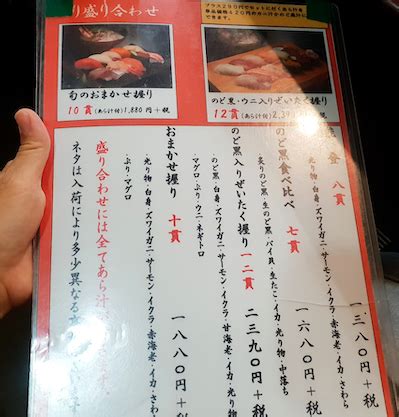 り盛り合わせ
プラス290円でセットに付くあら汁を
単品価格420円のカニ汁かわり
できます。
旬のおまかせ握り
10貫(あら汁付)1,880円+税
のど黒・ウニ入りぜいたく握り
12貫(あら汁付)2,39
八貫
光り物・白身・ズワイガニ・サーモン・イクラ・赤海老・イカ・さわら
一三八〇円+税
のど黒食べ比べ 七貫
炙りのど黒・生のど黒・バイ貝・生たこ・イカ・光り物・中落ち
一六八〇円+税
のど黒入りぜいたく握り 一二貫
のど黒・白身・ズワイガニ・サーモン・イクラ・甘海老・イカ・
マグロ・ぶり・ウニ・ネギトロ
二三九〇円+税
おまかせ握り 十貫
光り物・白身・ズワイガニ・サーモン・イクラ・赤海老・イカ・さわ
・ぶり・マグロ
一八八〇円+税
盛り合わせには全てあら汁
ます。
ネタは入荷により多少異なる